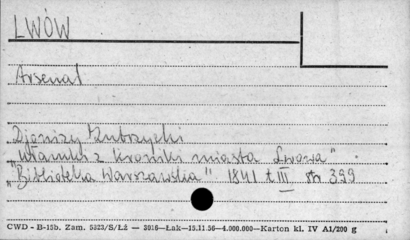 LWÓW
Arsenał
Djonizy Zubrzycki
"Ułamki z kroniki miasta Lwowa"
"Biblioteka Warszawska" 1841 t III str 399
CWD - B-15b. Zam. 5323/S/Łż — 3016—Łak—15.11.56—4.000.000—Karton kl. IV A1/200 g